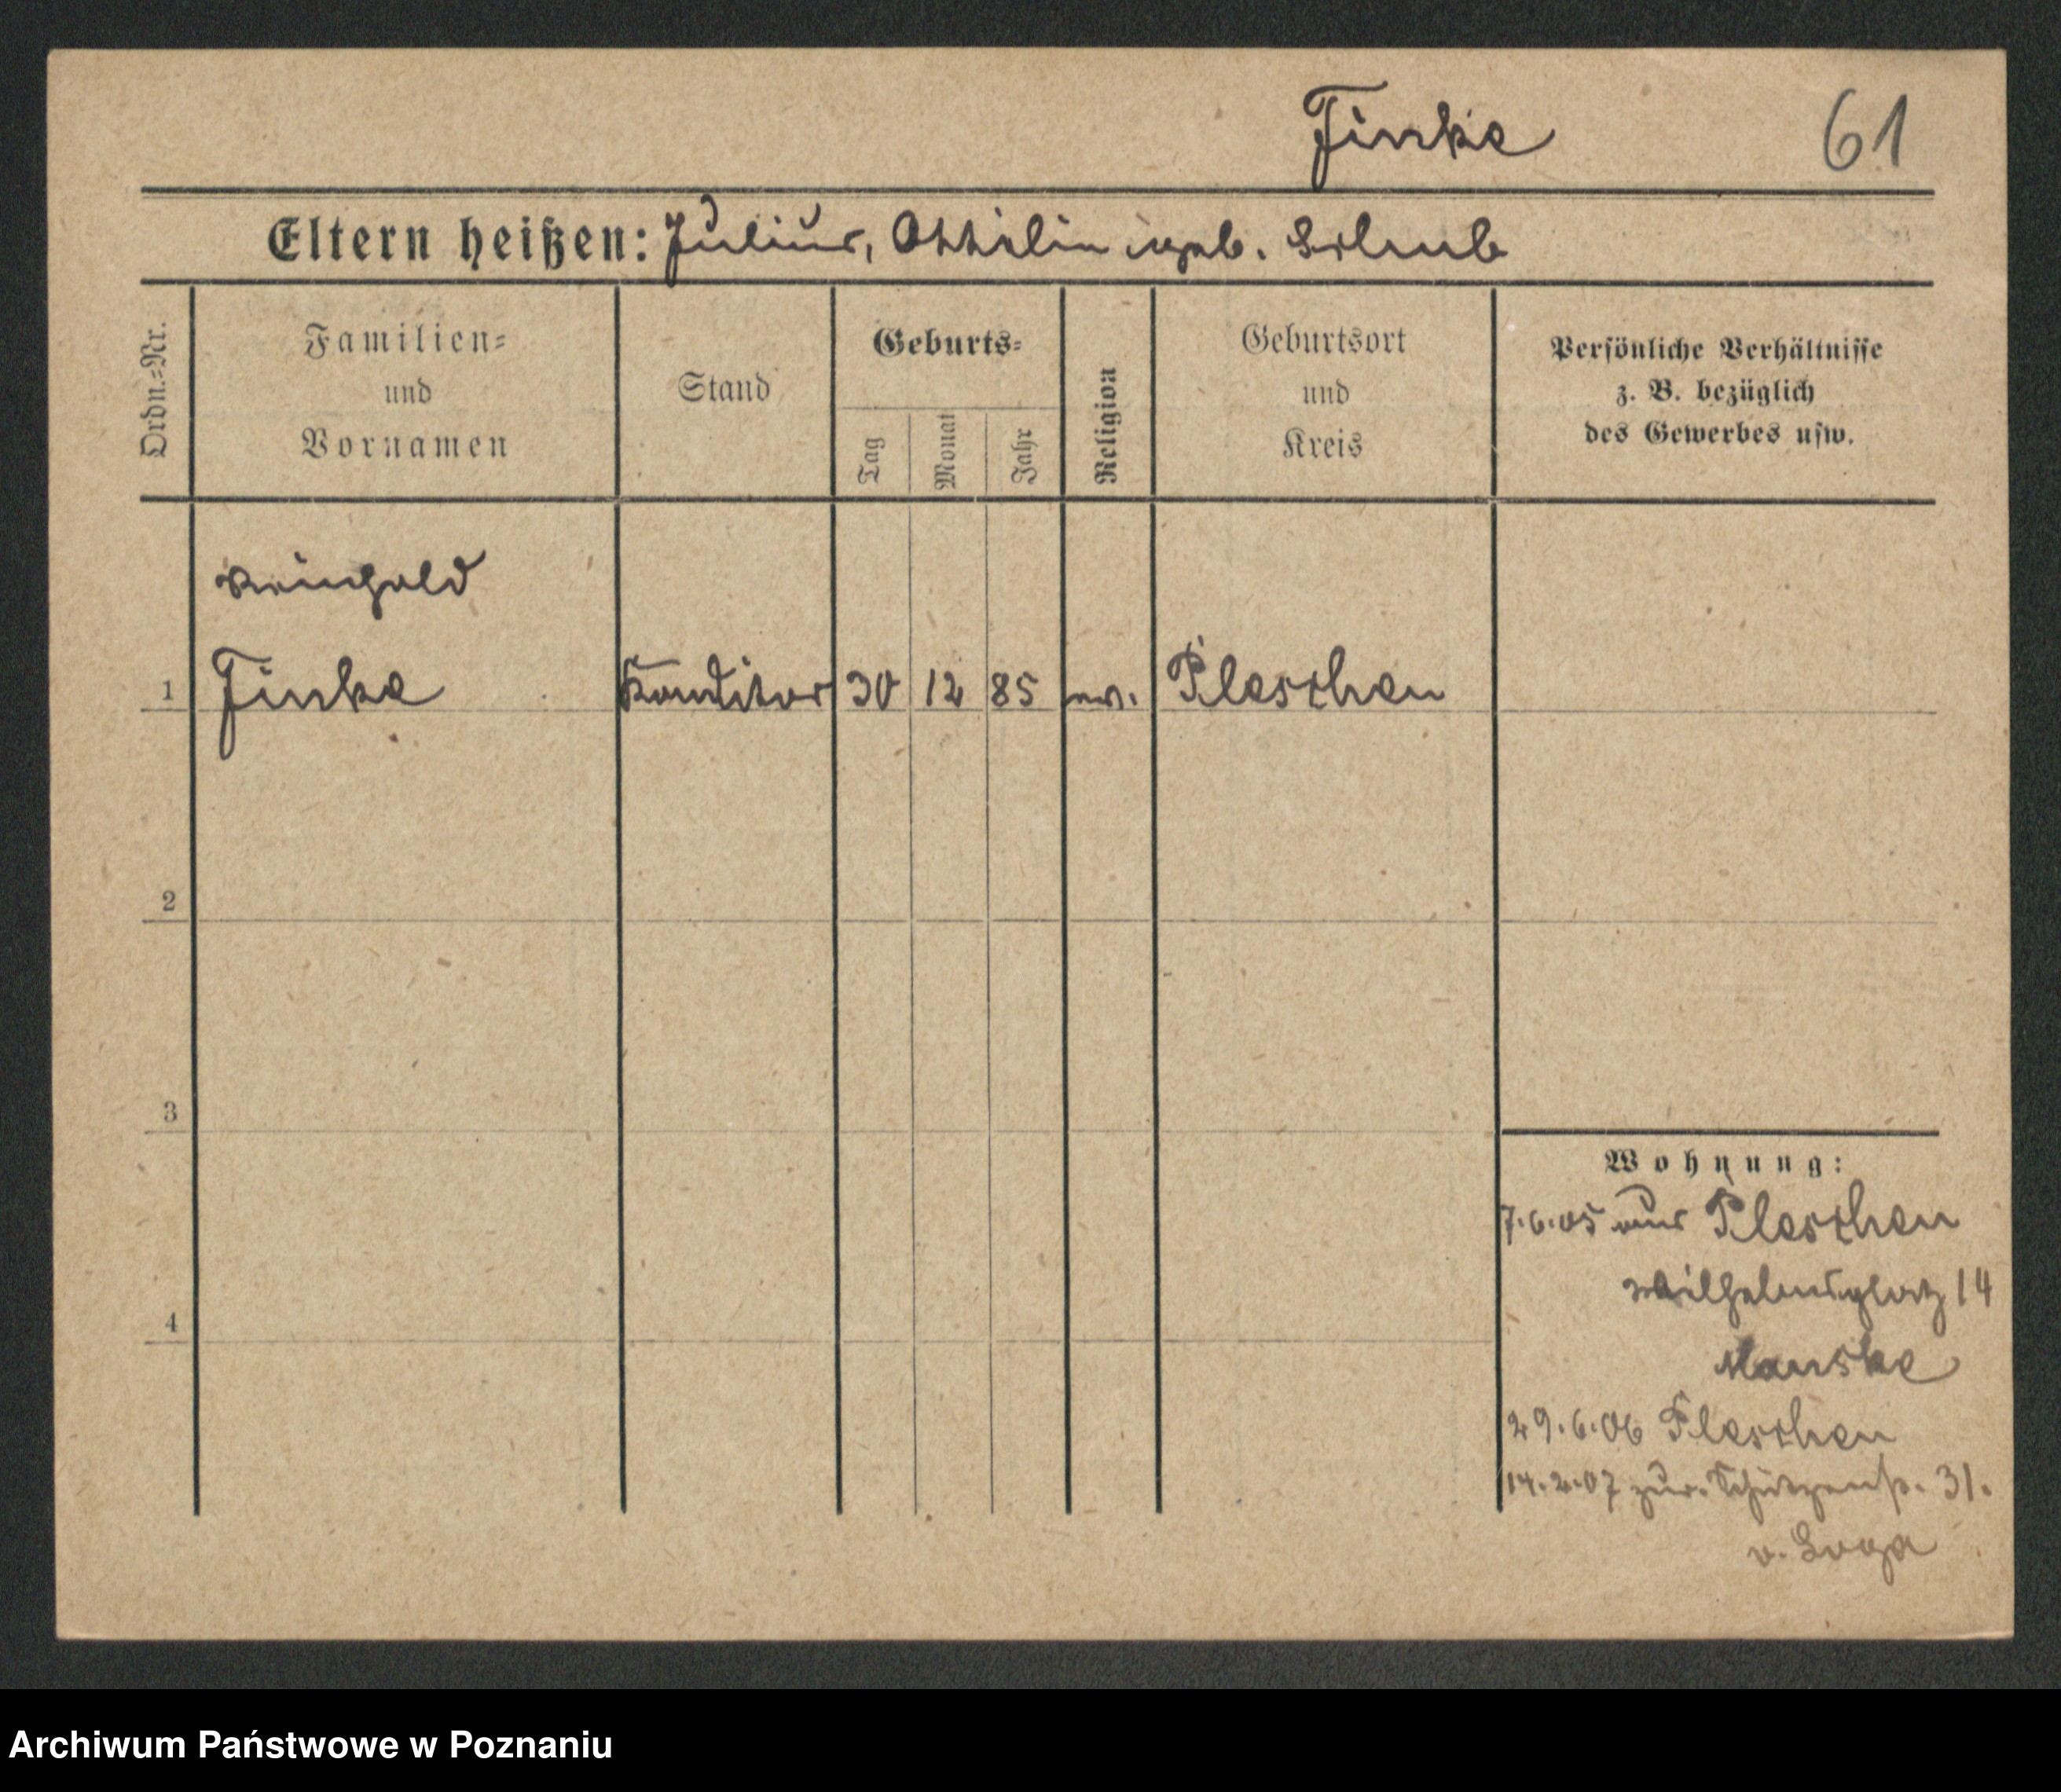 Finke 61
Eltern heißen: Julius, Ottilie geb.
Ordn.=Nr.
Familien=
und
Vornamen
Stand
Geburts=
Tag
Monat
Jahr
Religion
Geburtsort
und
Kreis
Persönliche Verhältnisse
z. B. bezüglich
des Gewerbes usw.
Reinhold
1 Finke Konditor 30 12 85 ev. Pleschen
2
3
4
Wohnung:
7.6.05 aus Pleschen
Wilhelmsplatz 14
Manske
29.6.06 Pleschen
14.2.07 zur. Schützenstr. 31.
v.
Archiwum Państwowe w Poznaniu